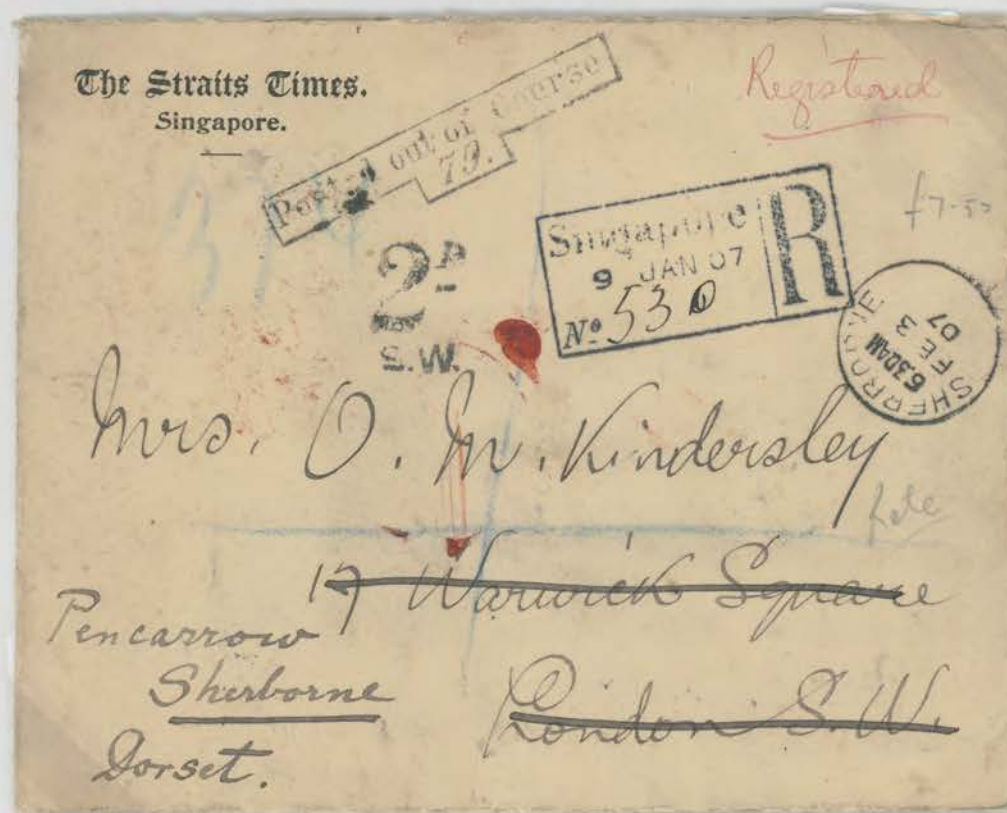 The Straits Times.
Singapore.
Posted out of Course
79.
Registered
£7-50
Singapore R
9 JAN 07
Nº 530
2D
S.W.
SHERBORNE
6.30AM
FE 3
07
Mrs. O. M. Kindersley
17 Warwick Square
London S.W.
Pencarrow
Sherborne
Dorset.